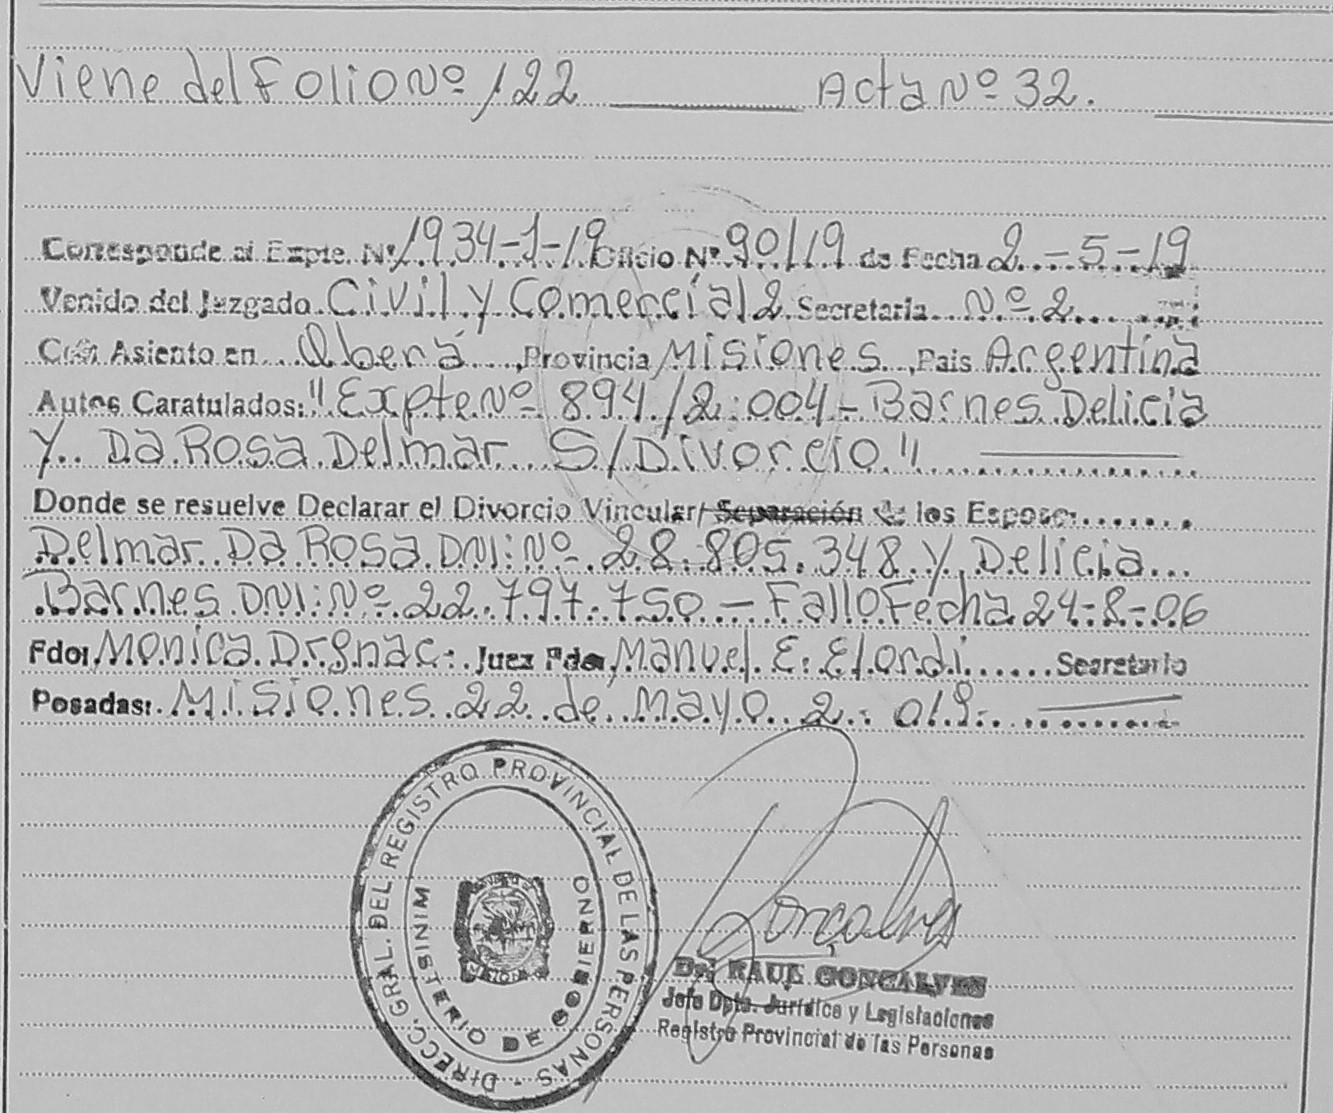 Viene del Folio Nº 122 Acta Nº 32.
Corresponde al Expte. Nº 1934-1-19 Oficio Nº 90/19 de Fecha 2-5-19
Venido del Juzgado Civil y Comercial 2 Secretaria Nº 2
Con Asiento en Oberá, Provincia Misiones, Pais Argentina
Autos Caratulados: "Expte Nº 894/2.004 - Barnes Delicia
Y Da Rosa Delmar S/Divorcio"
Donde se resuelve Declarar el Divorcio Vincular/ Separación de los Esposos
Delmar Da Rosa DNI: Nº 28.805.348 Y Delicia
Barnes DNI: Nº 22.797.750 - Fallo Fecha 24-8-06
Fdo: Monica Drgnac. Juez Fdo, Manuel E. Elordi Secretario
Posadas: Misiones 22 de Mayo 2.019.
DIRECC. GRAL. DEL REGISTRO PROVINCIAL DE LAS PERSONAS -
MINISTERIO DE GOBIERNO
MISIONES
Gonçalves
Dr. RAUL GONCALVES
Jefe Dpto. Jurídico y Legislaciones
Registro Provincial de las Personas